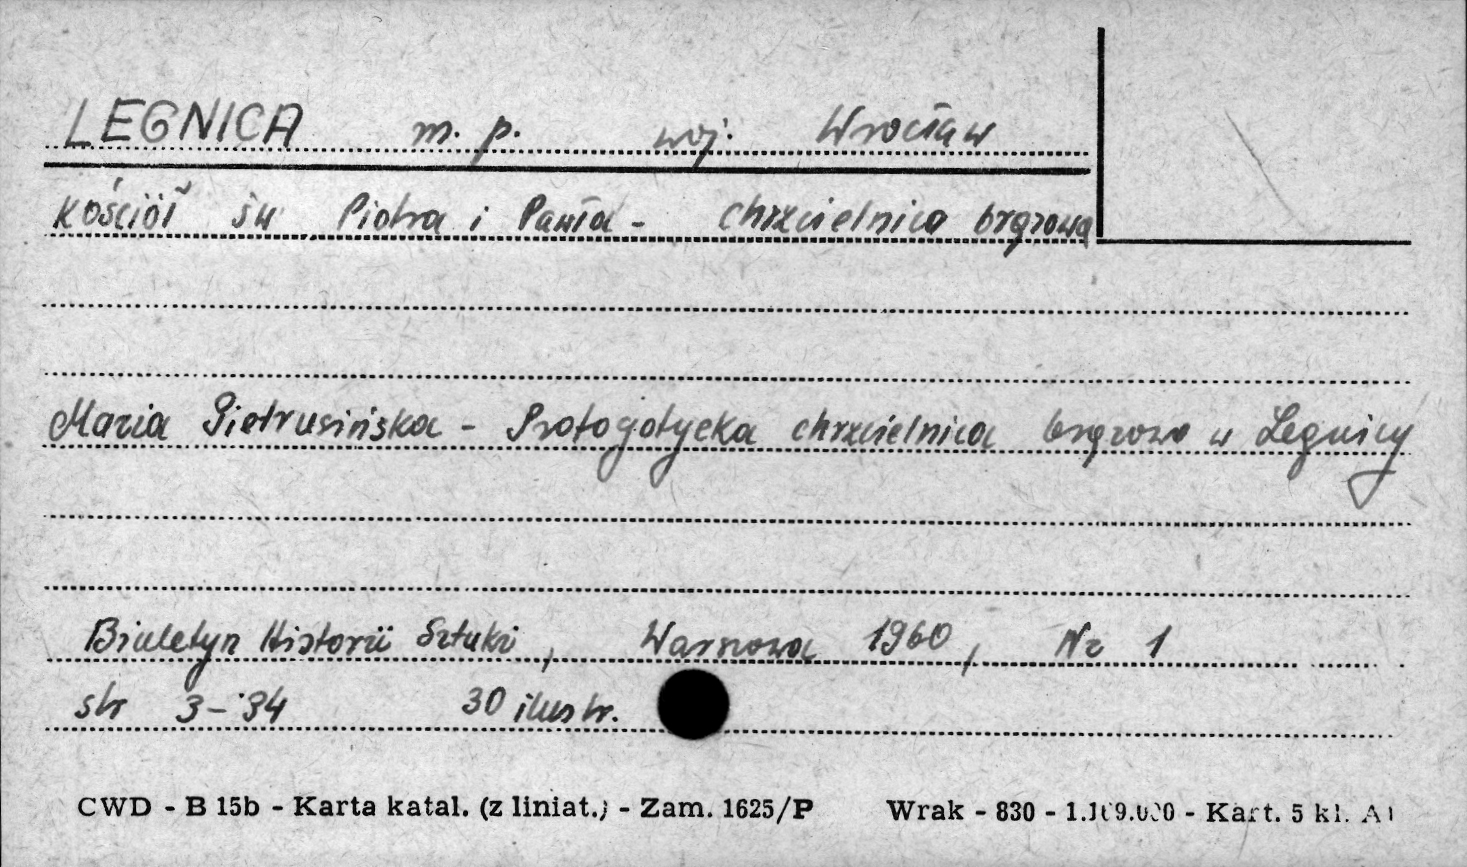 LEGNICA m. p. woj. Wrocław
Kościół św Piotra i Pawła - chrzcielnica brązowa
Maria Pietrusińska - Protogotycka chrzcielnica brązowa w Legnicy
Biuletyn Historii Sztuki, Warszawa 1960, Nr 1
str 3-34 30 ilustr.
CWD - B 15b - Karta katal. (z liniat.) - Zam. 1625/P Wrak - 830 - - Kart. 5 kl.